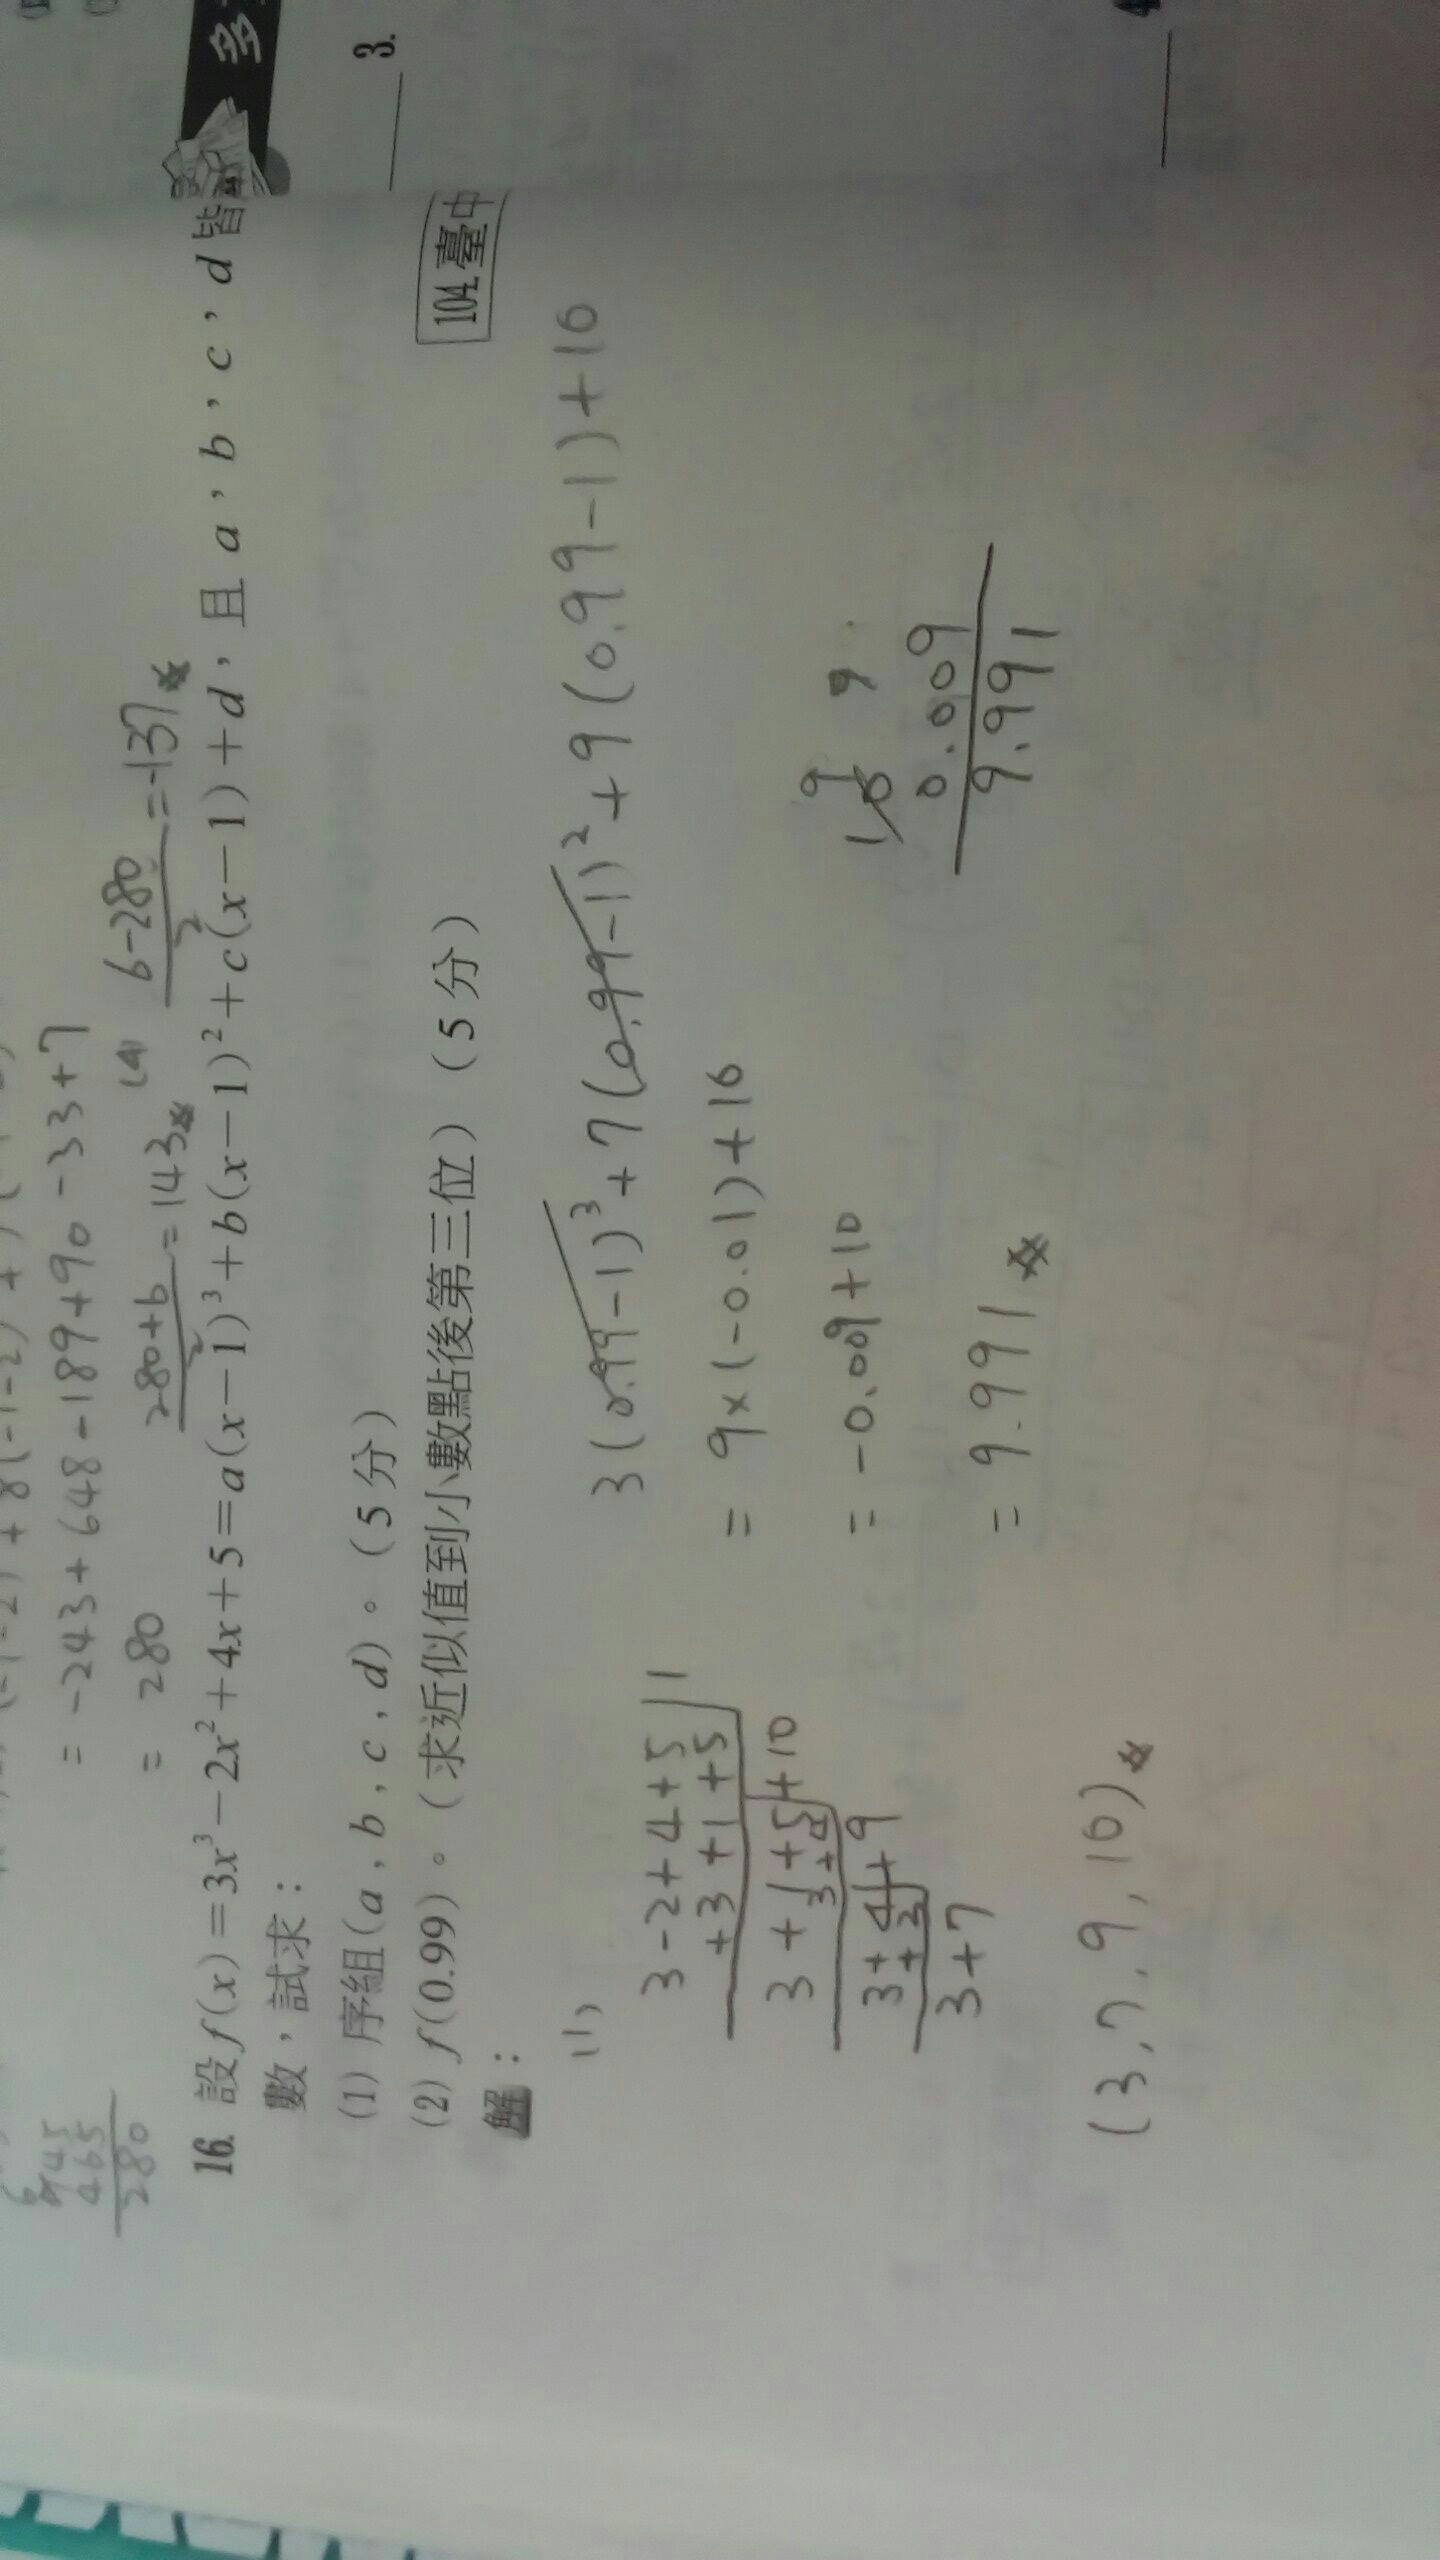 = -243 + 648 - 189 + 90 - 33 + 7
= 280
280+6/2 = 143
(4) 6-280/2 = -137
645
465
280
16. 設 f(x)=3x³-2x²+4x+5=a(x-1)³+b(x-1)²+c(x-1)+d,且 a,b,c,d 皆
數,試求:
(1) 序組(a,b,c,d)。(5分)
(2) f(0.99)。(求近似值到小數點後第三位)(5分)
104.臺中
解:
(1)
3-2+4+5 | 1
+3+1+5
3+1+5+10
3+4
3+4+9
+3
3+7
(3,7,9,10)
3(0.99-1)³+7(0.99-1)²+9(0.99-1)+10
= 9×(-0.01)+10
= -0.009+10
= 9.991
10
0.009
9.991
多
3.